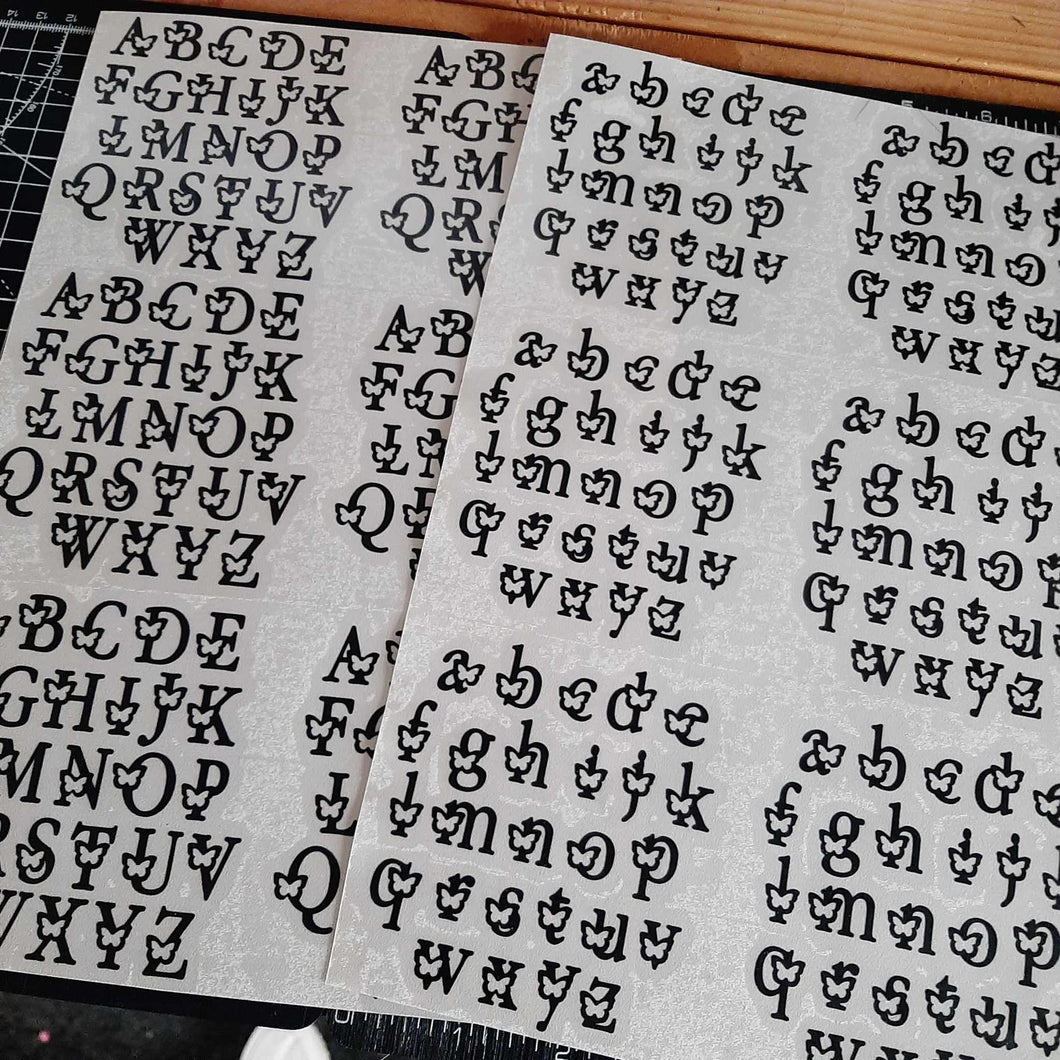 A B C D E
F G H I J K
L M N O P
Q R S T U V
W X Y Z
A B C D E
F G H I J K
L M N O P
Q R S T U V
W X Y Z
B C D E
G H I J K
M N O P
R S T U V
W X Y Z
A B C
F G H
L M
Q R S
W
A B
F G
L M
Q R
A
F G
L
Q
a b c d e
f g h i j k
l m n o p
q r s t u v
w x y z
a b c d e
f g h i j k
l m n o p
q r s t u v
w x y z
a b c d e
f g h i j k
l m n o p
q r s t u v
w x y z
a b c d
f g h i j
l m n o
q r s t u
w x y z
a b c d
f g h i j
l m n o p
q r s t u
w x y z
a b c d
f g h i j
l m n o p
q r s t u
w x y z
14 13 12
5 6
0 1 2